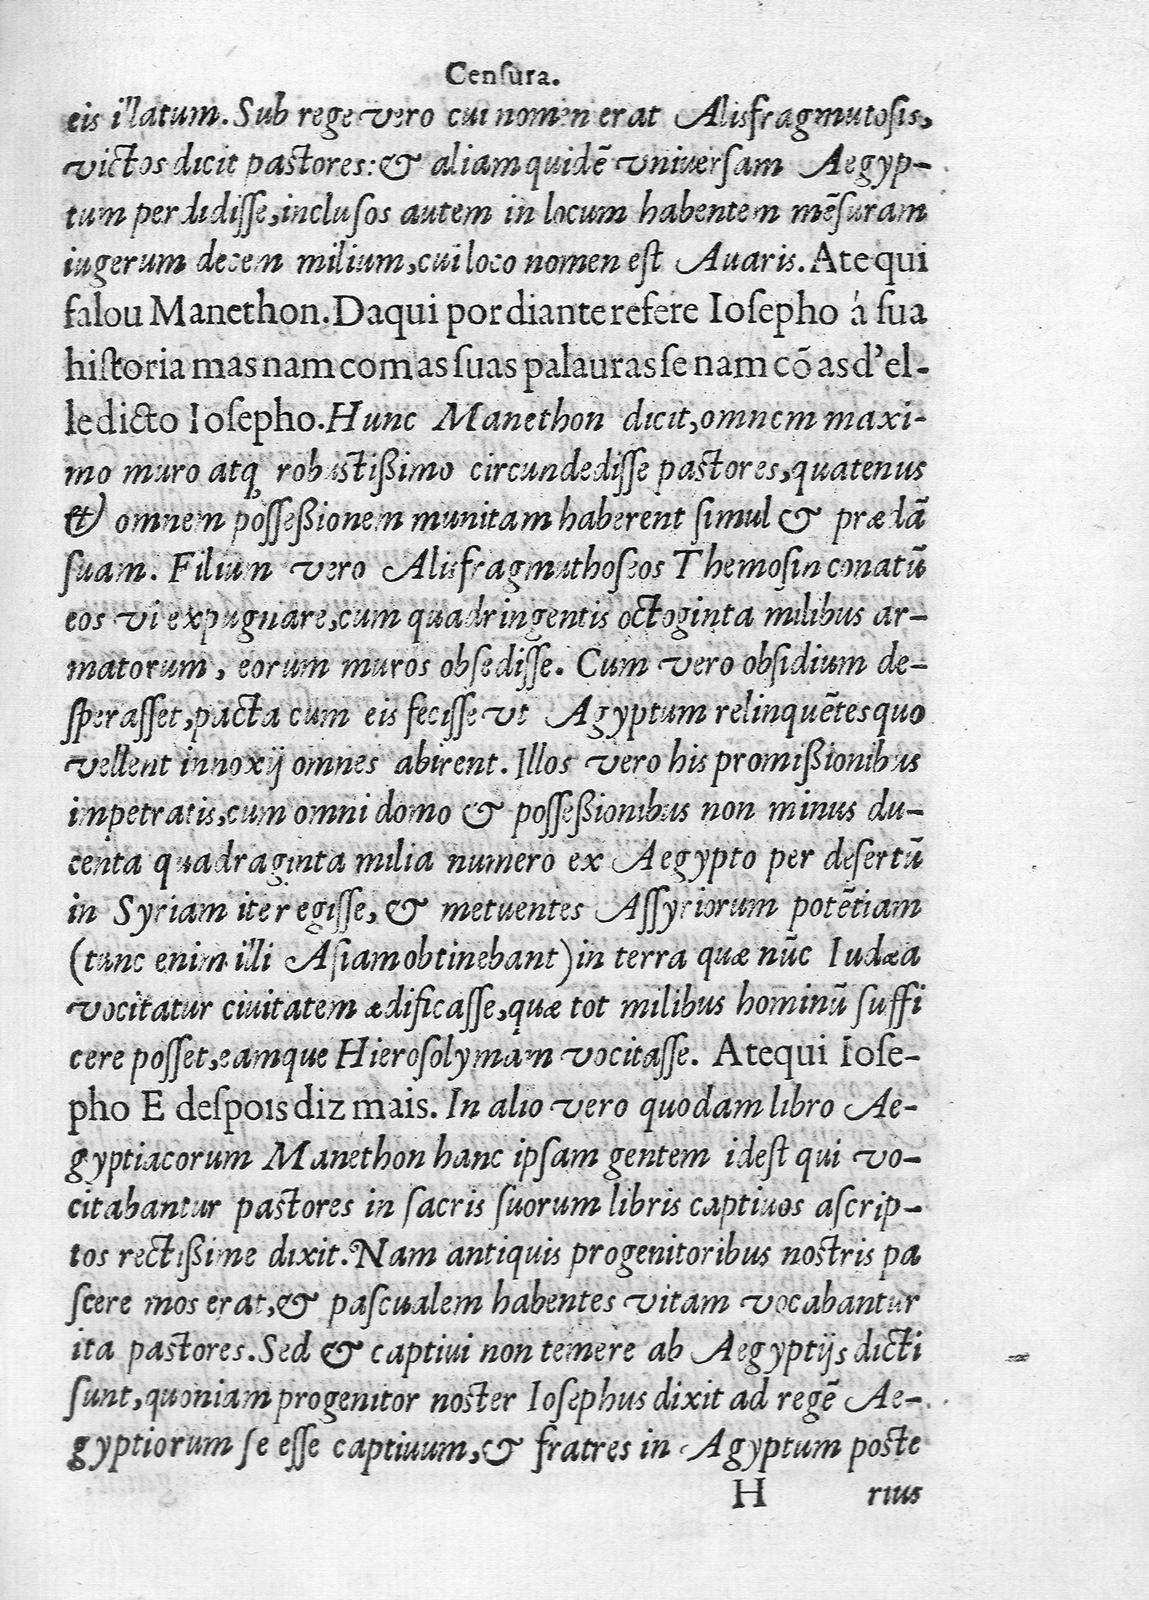 Cenſura.
eis illatum. Sub rege vero cui nomen erat Alisfragmutoſis,
victos dicit paſtores: & aliam quidē vniuerſam Aegyp-
tum perdidiſſe, incluſos autem in locum habentem mēſuram
iugerum decem milium, cui loco nomen eſt Auaris. Ate qui
falou Manethon. Daqui por diante refere Ioſepho á ſua
hiſtoria mas nam com as ſuas palauras ſe nam cō as d'el-
le dicto Ioſepho. Hunc Manethon dicit, omnem maxi-
mo muro atq robuſtißimo circundediſſe paſtores, quatenus
& omnem poſſeßionem munitam haberent ſimul & prædā
ſuam. Filium vero Alisfragmuthoſeos Themoſin conatū
eos vi expugnare, cum quadringentis octoginta milibus ar-
matorum, eorum muros obſediſſe. Cum vero obſidium de-
ſperaſſet, pacta cum eis feciſſe vt Agyptum relinquētes quo
vellent innoxij omnes abirent. Illos vero his promißionibus
impetratis, cum omni domo & poſſeßionibus non minus du-
centa quadraginta milia numero ex Aegypto per deſertū
in Syriam iter egiſſe, & metuentes Aſſyriorum potētiam
(tunc enim illi Aſiam obtinebant) in terra quæ nūc Iudæa
vocitatur ciuitatem ædificaſſe, quæ tot milibus hominū ſuffi
cere poſſet, eamque Hieroſolymam vocitaſſe. Ate qui Ioſe-
pho E deſpois diz mais. In alio vero quodam libro Ae-
gyptiacorum Manethon hanc ipſam gentem ideſt qui vo-
citabantur paſtores in ſacris ſuorum libris captiuos aſcrip-
tos rectißime dixit. Nam antiquis progenitoribus noſtris pa
ſcere mos erat, & paſcualem habentes vitam vocabantur
ita paſtores. Sed & captiui non temere ab Aegyptijs dicti
ſunt, quoniam progenitor noſter Ioſephus dixit ad regē Ae-
gyptiorum ſe eſſe captiuum, & fratres in Agyptum poſte
H rius